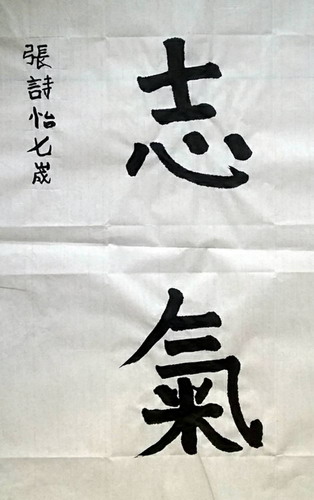 志氣
張詩怡七歲